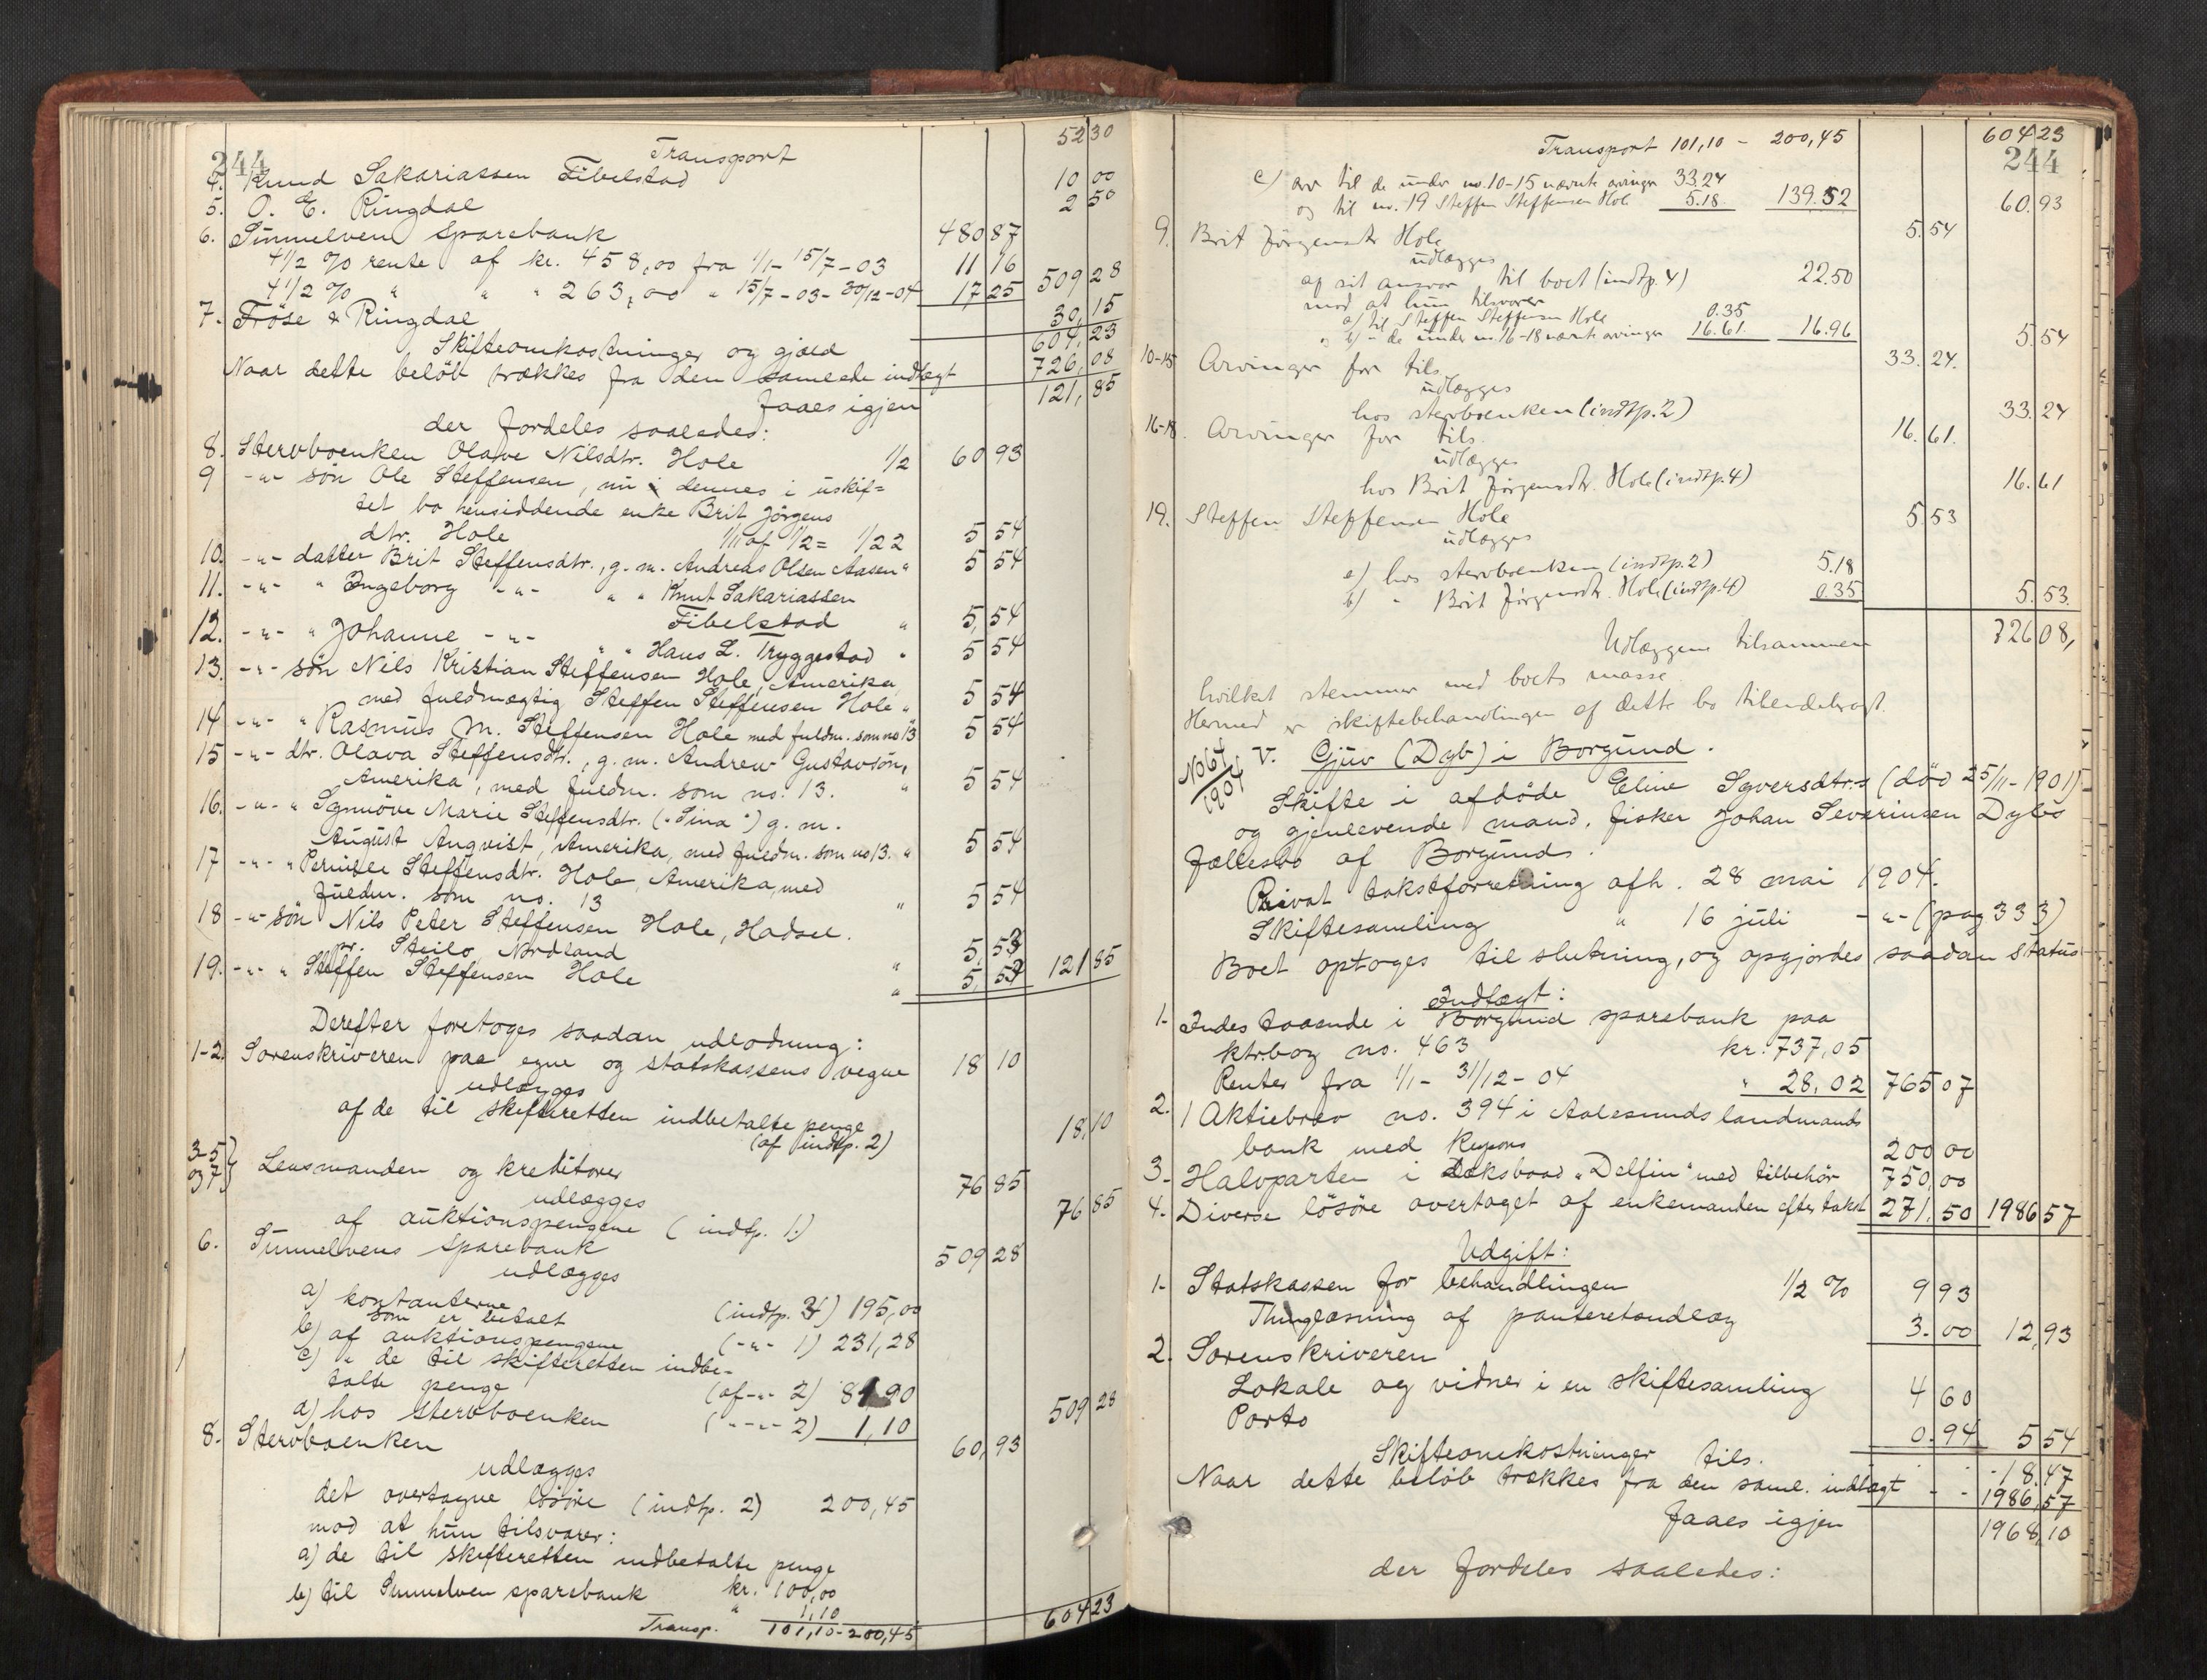 244
Transport 52 30
4. Knud Sakariassen Fibelstad 10 00
5. O. E. Ringdal 2 50
6. Sunnelven Sparebank 480 87
4 1/2 % rente af kr. 458,00 fra 1/1 - 15/7 - 03 11 16
4 1/2 % " " " 263,00 " 15/7 - 03 - 30/12 - 04 17 25 509 28
7. Frøse & Ringdal 30,15
Skifteomkostninger og gjæld 604,23
Naar dette beløb trækkes fra den samlede indtægt 726,08
faaes igjen 121,85
der fordeles saaledes:
8. Stervboenken Olave Nilsdtr. Hole 1/2 60 93
9 -"- søn Ole Steffensen, nu i dennes i uskif=
tet bo hensiddende enke Brit Jørgens
dtr. Hole 1/11 af 1/2 = 1/22 5 54
10. -"- datter Brit Steffensdtr., g. m. Andreas Olsen Aasen " 5 54
11. -"- " Ingeborg -"- " " Knut Sakariassen
Fibelstad " 5,54
12. -"- " Johanne -"- " " Hans L. Tryggestad " 5 54
13. -"- søn Nils Kristian Steffensen Hole, Amerika,
med fuldmægtig Steffen Steffensen Hole " 5 54
14 -"- " Rasmus M. Steffensen Hole med fuldm. som no 13 " 5 54
15 -"- dtr. Olava Steffensdtr., g. m. Andrew Gustavson,
Amerika, med fuldm. som no. 13. " 5 54
16. -"- " Synnøve Marie Steffensdtr. ("Sina") g. m.
August Anqvist, Amerika, med fuldm. som no 13. " 5 54
17 -"- " Pernille Steffensdtr. Hole, Amerika, med
fuldm. som no. 13 " 5 54
18 -"- søn Nils Peter Steffensen Hole, Hadsel.
pr. Steilo, Nordland " 5,53
19. -"- " Steffen Steffensen Hole " 5,53 121 85
Derefter foretoges saadan udlodning:
1-2. Sorenskriveren paa egne og statskassens vegne 18 10
udlægges
af de til skifteretten indbetalte penge
(af indtp. 2) 18,10
3-5}
og 7} Lensmanden og kreditorer 76 85
udlægges
af auktionspengene (indtp. 1.) 76 85
6. Sunnelvens sparebank 509 28
udlægges
a) kontanterne
som er betalt (indtp. 3) 195,00
b) af auktionspengene (-"- 1) 231,28
c) " de til skifteretten indbe-
talte penge (af -"- 2) 81,90
d) hos stervboenken (" -"- 2) 1,10 509 28
8. Stervboenken 60,93
udlægges
det overtagne løsøre (indtp. 2) 200,45
mod at hun tilsvarer:
a) de til skifteretten indbetalte penge
kr. 100,00
b) til Sunnelven sparebank " 1,10
Transp. 101,10 - 200,45 604 23
244
Transport 101,10 - 200,45 604 23
c) arv til de under no. 10-15 nævnte arvinger 33.24
og til no. 19 Steffen Steffensen Hole 5.18 139.52 60.93
9. Brit Jørgensdtr. Hole 5.54
udlægges
af sit ansvar til boet (indtp. 4) 22.50
mod at hun tilsvarer
a) til Steffen Steffensen Hole 0.35
og b) - de under no. 16-18 nævnte arvinger 16.61 16.96 5.54
10-15 Arvinger for tils. 33.24.
udlægges
hos stervboenken (indtp. 2) 33.24
16-18. Arvinger for tils. 16.61.
udlægges
hos Brit Jørgensdtr. Hole (indtp. 4) 16.61
19. Steffen Steffensen Hole 5.53
udlægges
a) hos stervboenken (indtp. 2) 5.18
b) " Brit Jørgensdtr. Hole (indtp. 4) 0.35 5.53
Udlæggene tilsammen 726 08,
hvilket stemmer med boets masse.
Hermed er skiftebehandlingen af dette bo tilendebragt.
No 64/1904 V. Gjuv (Dyb) i Borgund.
Skifte i afdøde Eline Syversdtr.s (død 25/11 - 1901)
og gjenlevende mand, fisker Johan Severinsen Dybs
fællesbo af Borgund.
Privat takstforretning afh. 28 mai 1904.
Skiftesamling " 16 juli -"- (pag 333)
Boet optoges til slutning, og opgjordes saadan status
Indtægt:
1. Indestaaende i Borgund sparebank paa
ktrbog no. 463 kr. 737,05
Renter fra 1/1 - 31/12 - 04 " 28,02 765 07
2. 1 Aktiebrev no. 394 i Aalesunds landmands
bank med kupons 200 00
3. Halvparten i dæksbaad "Delfin" med tilbehør 750,00
4. Diverse løsøre overtaget af enkemanden efter takst 271,50 1986 57
Udgift:
1. Statskassen for behandlingen 1/2 % 9 93
Thinglæsning af panteretsudlæg 3.00 12,93
2. Sorenskriveren
Lokale og vidner i en skiftesamling 4 60
Porto 0.94 5 54
Skifteomkostninger tils. 18,47
Naar dette beløb trækkes fra den saml. indtægt - - 1986,57
faaes igjen 1968,10
der fordeles saaledes: